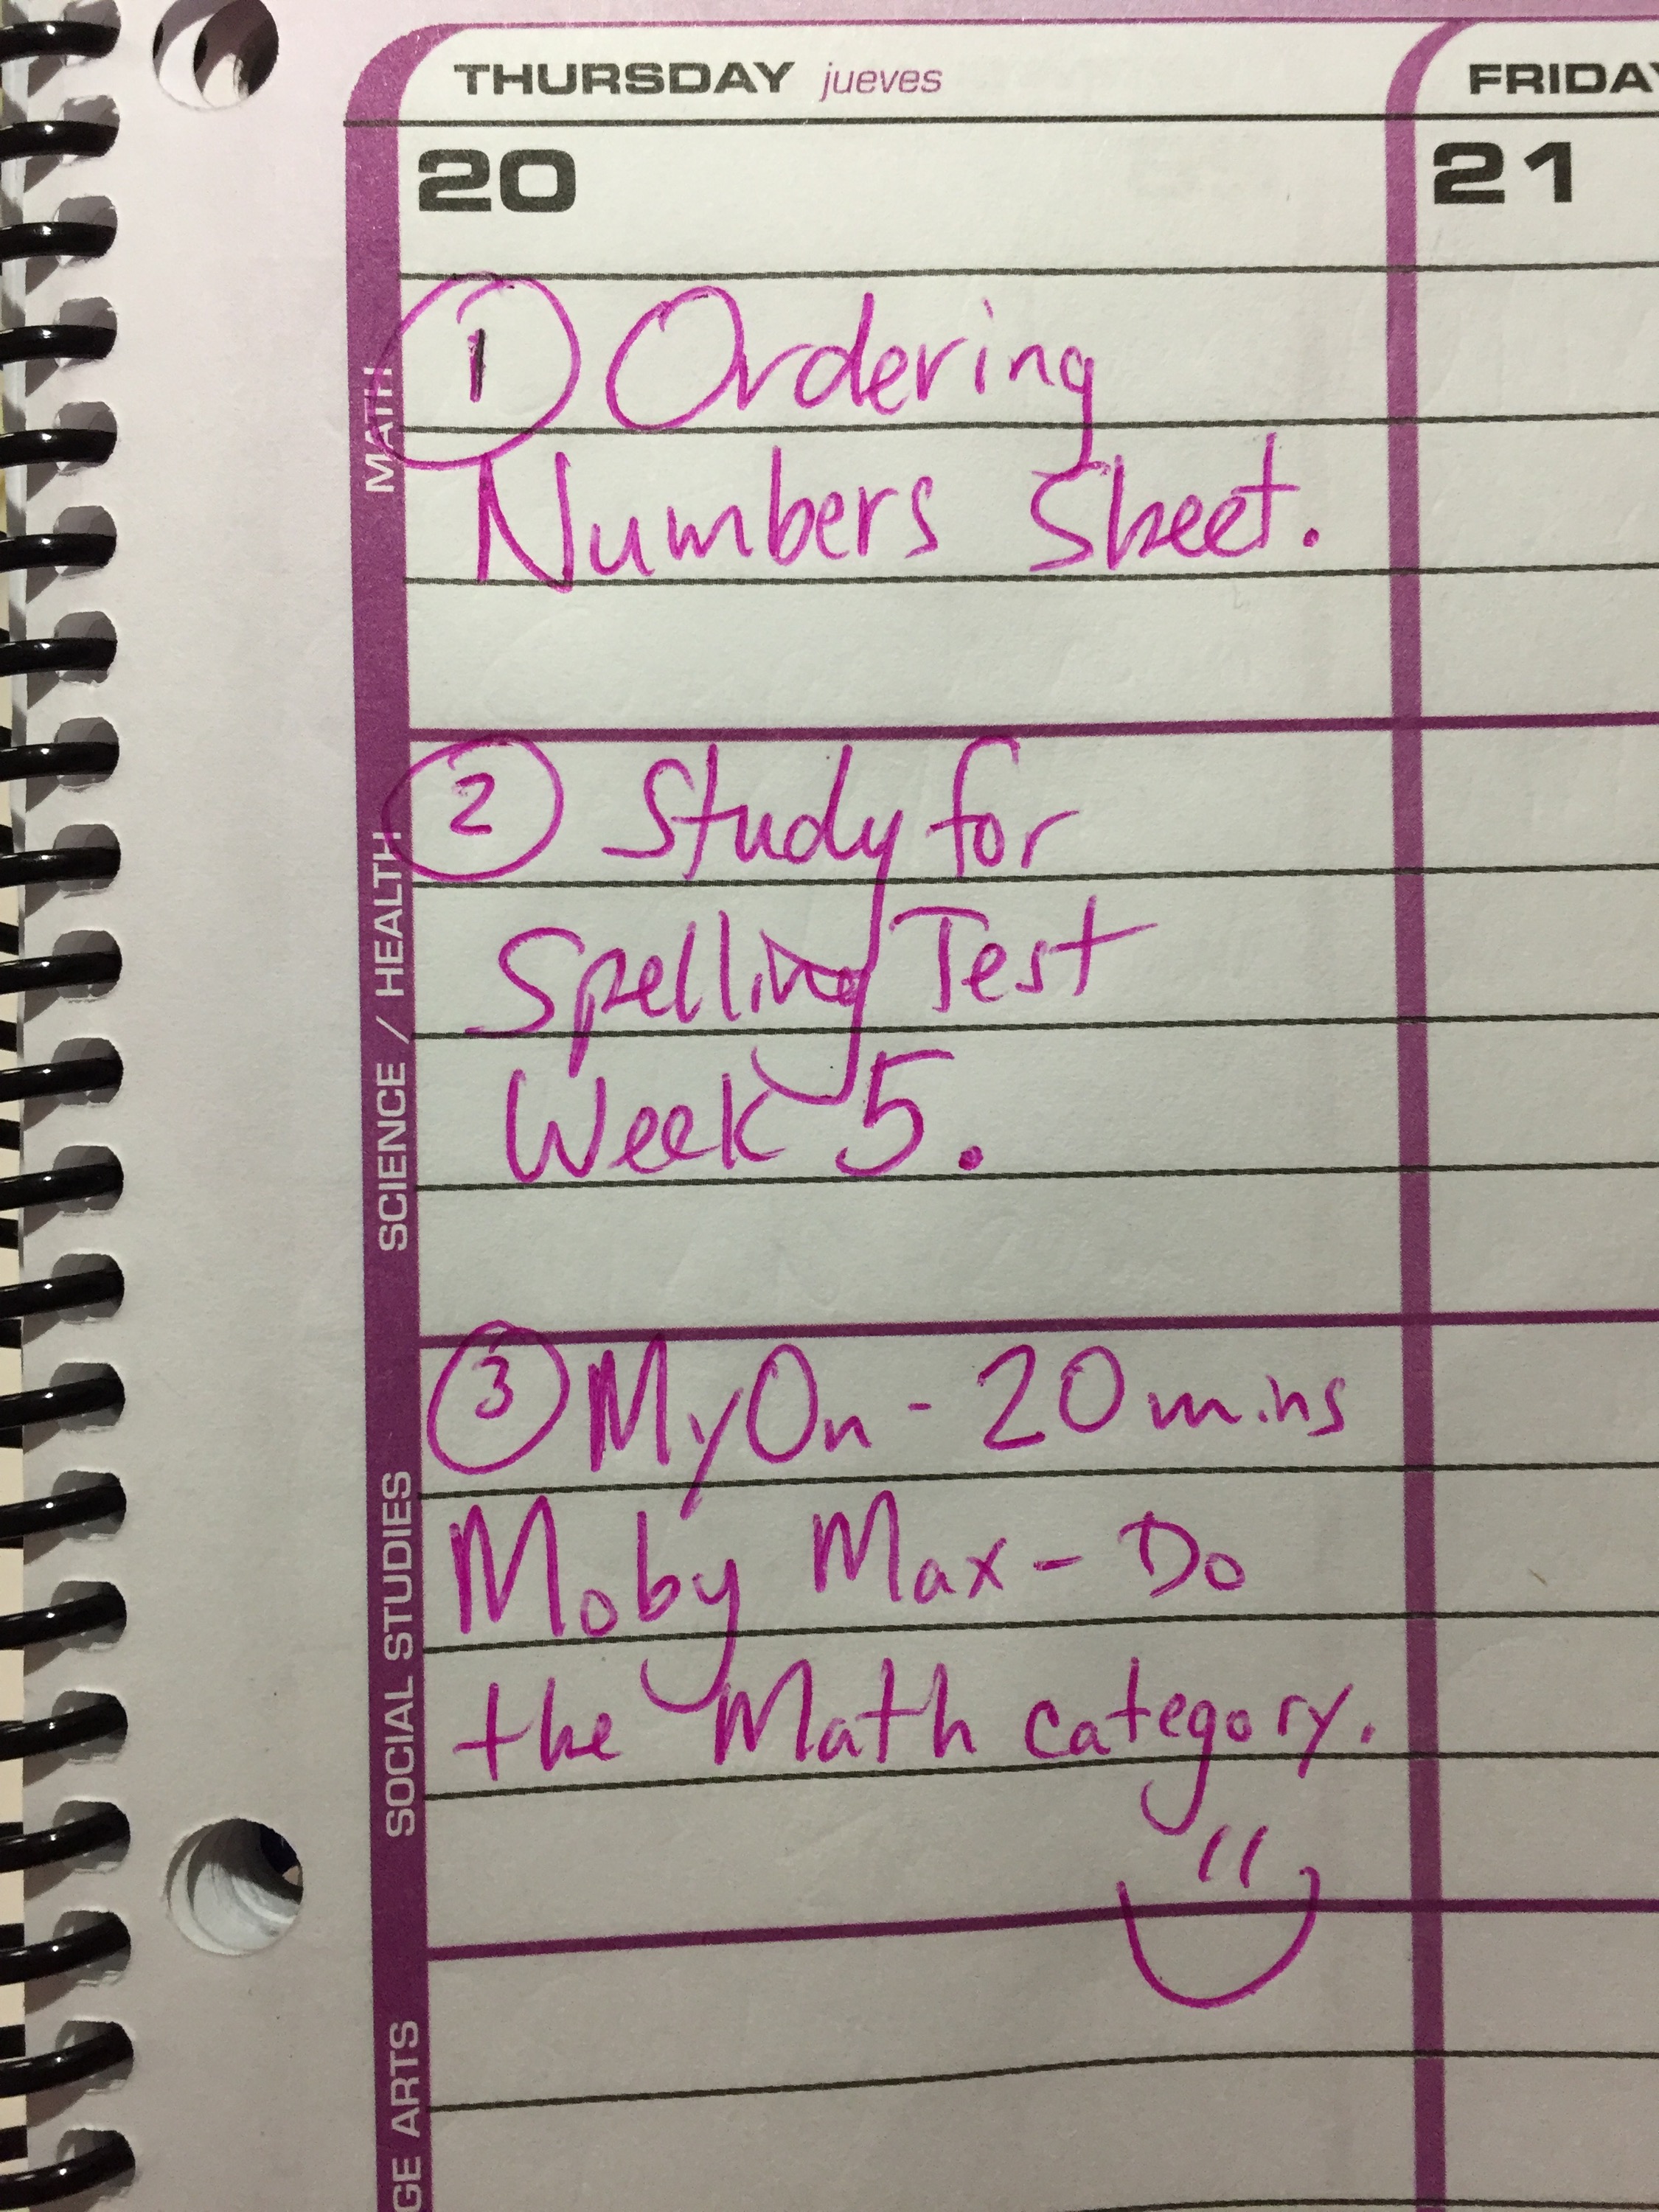 THURSDAY jueves
FRIDAY
20
21
MATH
① Ordering
Numbers Sheet.
SCIENCE / HEALTH
② Study for
Spelling Test
Week 5.
SOCIAL STUDIES
③ MyOn - 20 mins
Moby Max - Do
the Math category.
GE ARTS